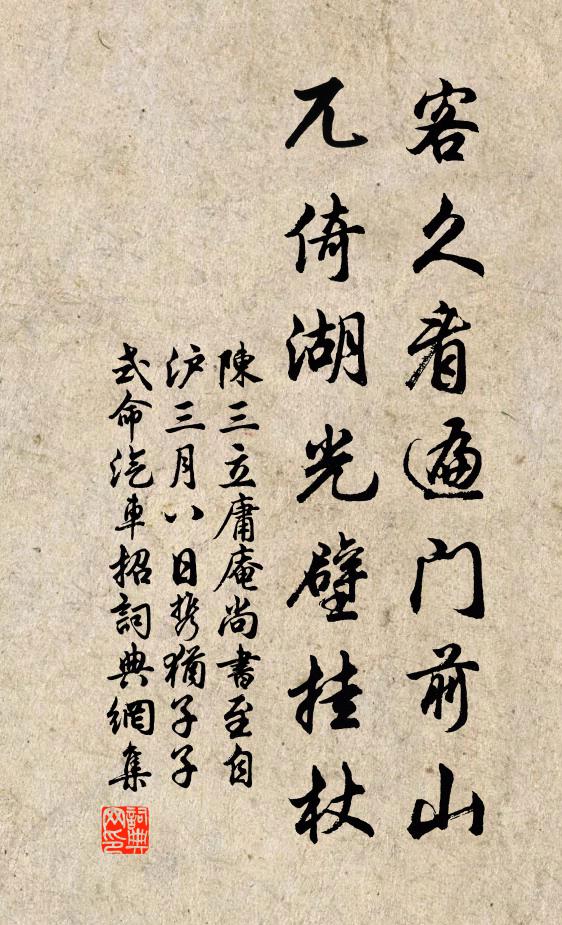 客久看遍门前山
兀倚湖光壁挂杖
陳三立庸庵尚書至自
沪三月八日携猶子子
式命汽車招詞典網集
詞典
网印